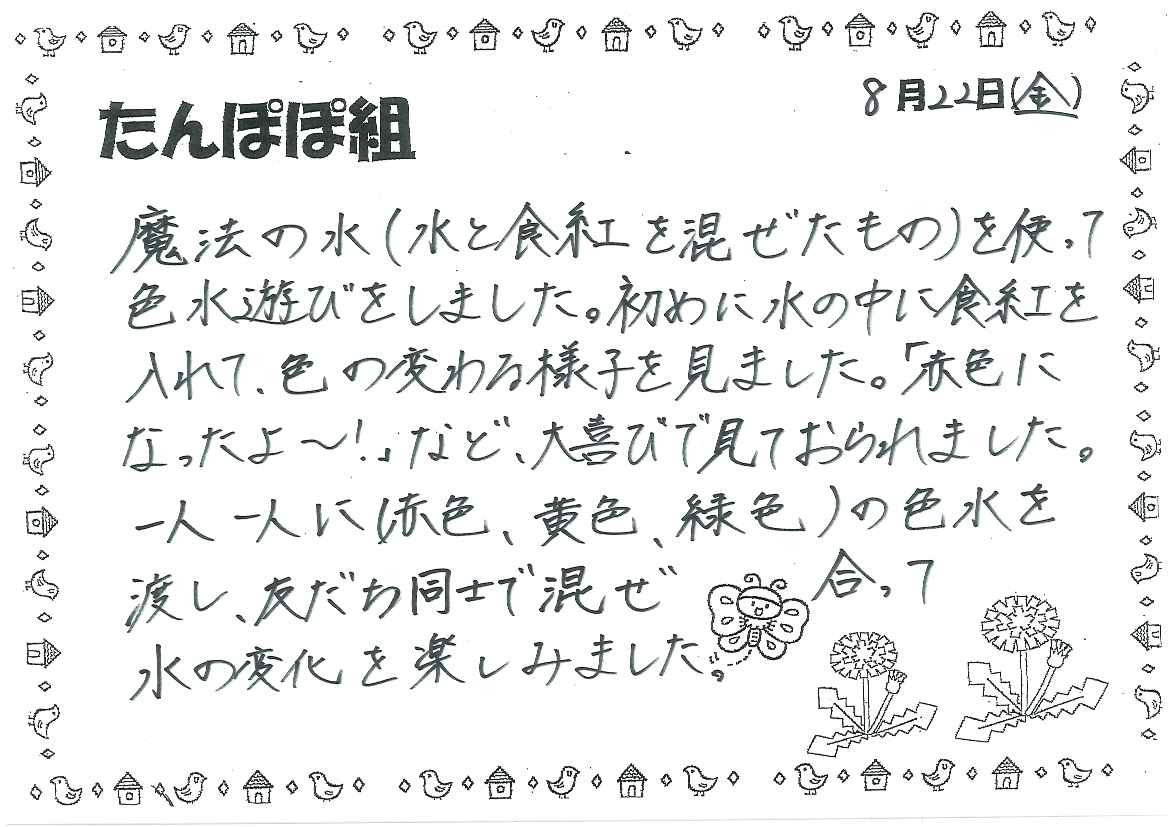 たんぽぽ組
8月22日(金)
魔法の水(水と食紅を混ぜたもの)を使って
色水遊びをしました。初めに水の中に食紅を
入れて、色の変わる様子を見ました。「赤色に
なったよ〜!」など、大喜びで見ておられました。
一人一人に(赤色、黄色、緑色)の色水を
渡し、友だち同士で混ぜ合って
水の変化を楽しみました。